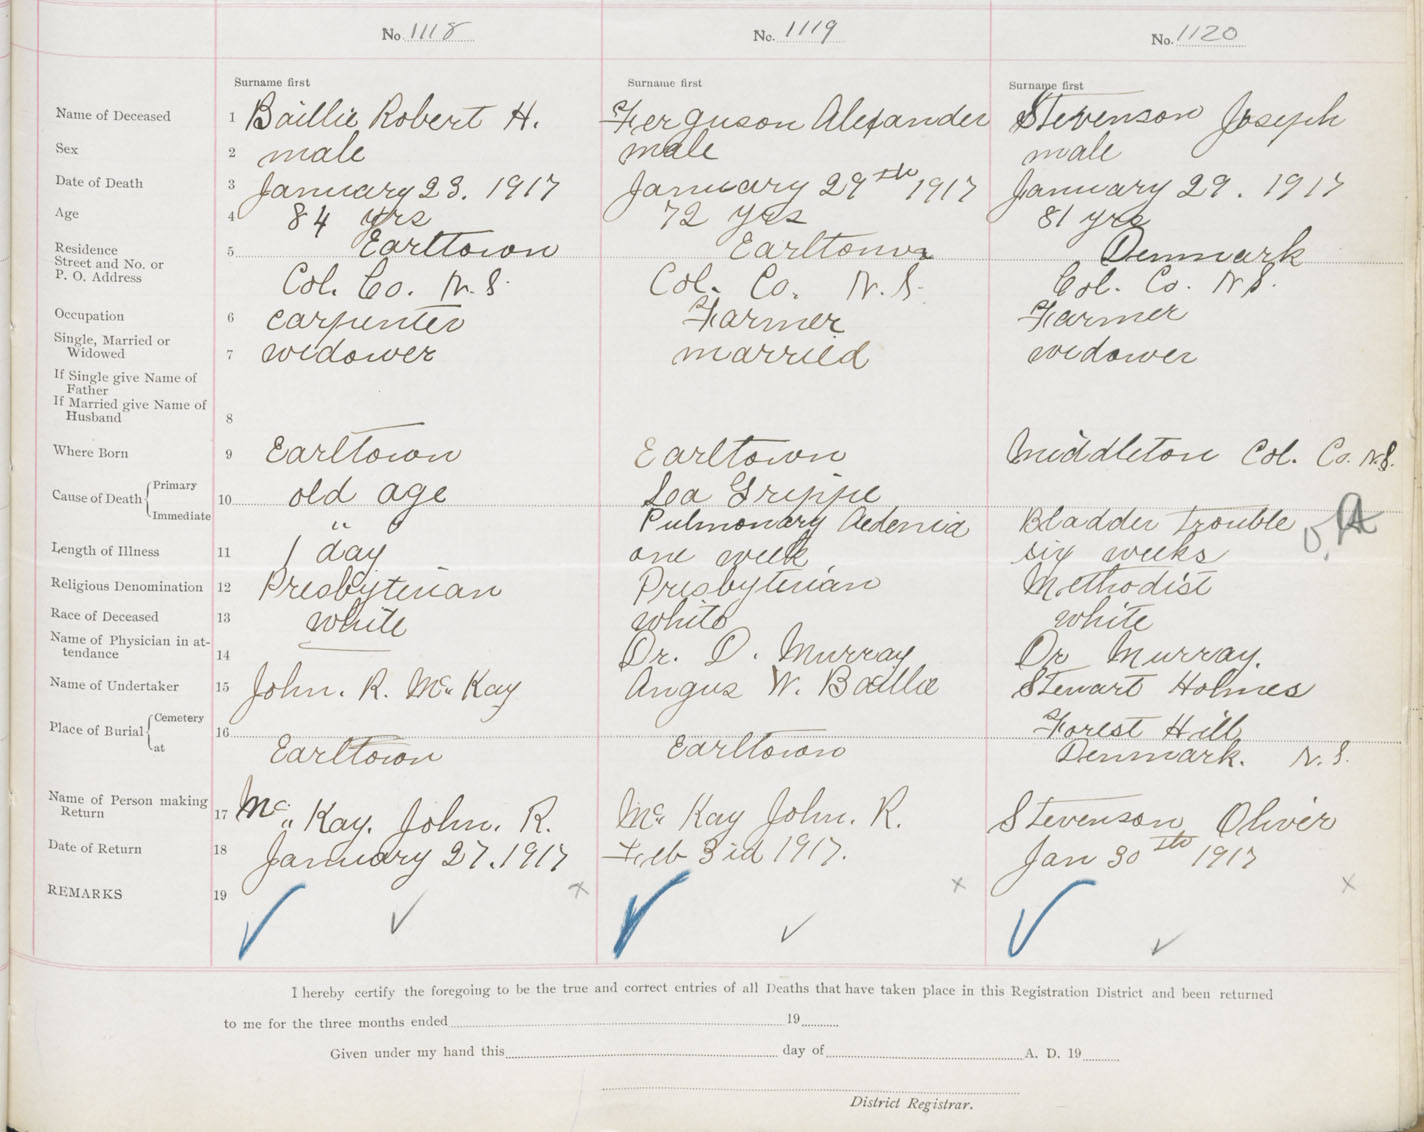 No. 1118 No. 1119 No. 1120
Surname first Surname first Surname first
Name of Deceased 1 Baillie Robert H. Ferguson Alexander Stevenson Joseph
Sex 2 male male male
Date of Death 3 January 23. 1917 January 29th 1917 January 29. 1917
Age 4 84 yrs 72 yrs 81 yrs
Residence 5 Earltown Earltown Denmark
Street and No. or
P. O. Address Col. Co. N.S. Col. Co. N.S. Col. Co. N.S.
Occupation 6 carpenter Farmer Farmer
Single, Married or
Widowed 7 widower married widower
If Single give Name of
Father
If Married give Name of
Husband 8
Where Born 9 Earltown Earltown Middleton Col. Co. N.S.
Cause of Death Primary 10 old age La Grippe
Immediate " Pulmonary Aedenia Bladder trouble
Length of Illness 11 1 day one week six weeks
Religious Denomination 12 Presbyterian Presbyterian Methodist
Race of Deceased 13 white white white
Name of Physician in at-
tendance 14 Dr. D. Murray Dr Murray.
Name of Undertaker 15 John. R. McKay Angus W. Baillie Stewart Holmes
Place of Burial Cemetery 16 Forest Hill
at Earltown Earltown Denmark. N.S.
Name of Person making
Return 17 Mc Kay. John. R. Mc Kay John. R. Stevenson Oliver
Date of Return 18 January 27. 1917 Feb 3rd 1917. Jan 30th 1917
REMARKS 19
I hereby certify the foregoing to be the true and correct entries of all Deaths that have taken place in this Registration District and been returned
to me for the three months ended 19
Given under my hand this day of A. D. 19
District Registrar.